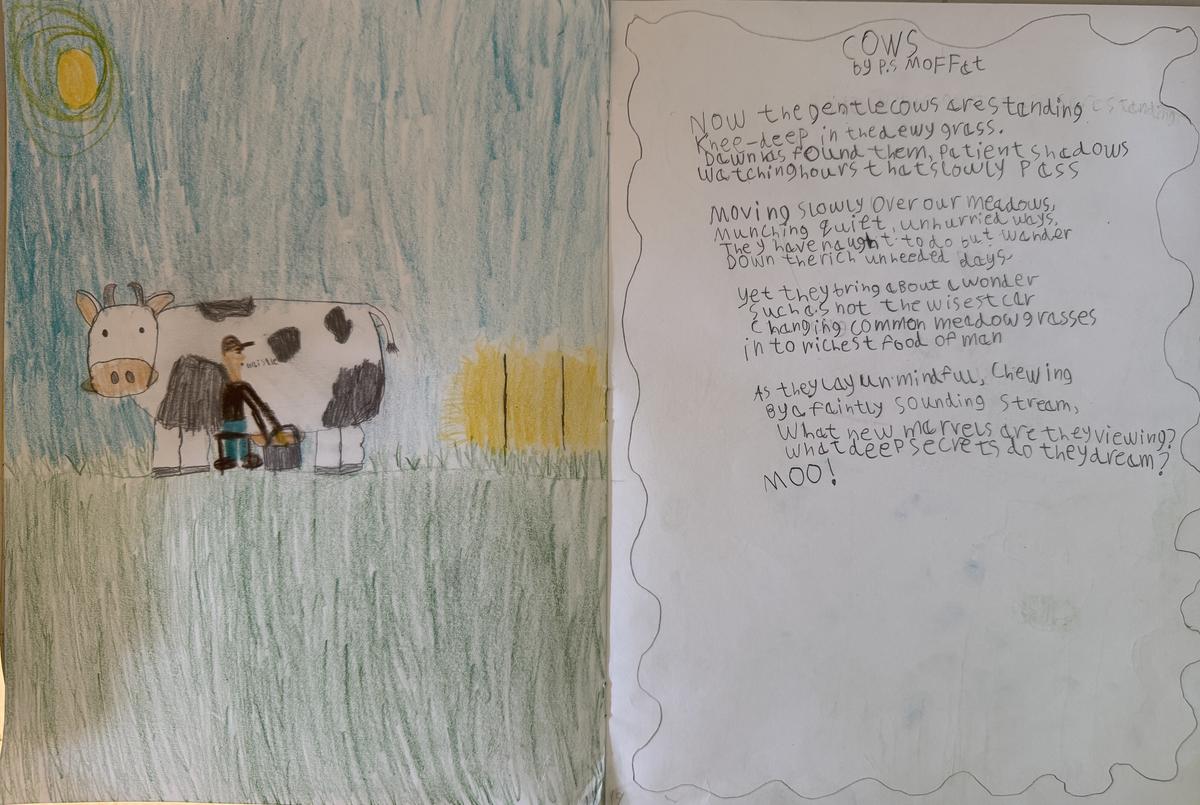 whistle
COWS
by P.S MOFFat
Now the gentle cows are standing
Knee-deep in the dewy grass.
Dawn has found them, patient shadows
Watching hours that slowly Pass
Moving slowly Over our meadows,
Munching quiet, unhurried ways.
They have naught to do but wander
Down the rich unheeded days
Yet they bring about a wonder
such as not the wisest can
Changing common meadow grasses
in to richest food of man
As they lay unmindful, Chewing
By a faintly sounding stream,
What new marvels are they viewing?
What deep secrets do they dream?
MOO!